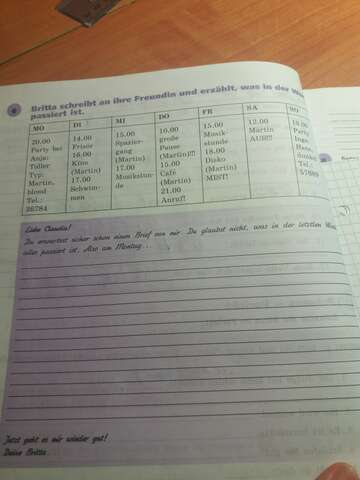 Britta schreibt an ihre Freundin und erzählt, was in der
passiert ist.
MO DI MI DO FR SA SO
20.00
Party bei
Anja:
Toller
Typ:
Martin,
blond
Tel.:
26784
14.00
Frisör
16.00
Kino
(Martin)
17.00
Schwim-
men
15.00
Spazier-
gang
(Martin)
17.00
Musikstun-
de
10.00
große
Pause
(Martin)!!!
15.00
Café
(Martin)
21.00
Anruf!
15.00
Musik-
stunde
18.00
Disko
(Martin)
MIST!
12.00
Martin
AUS!!!
Party
Tel.:
57689
Liebe Claudia!
Du erwartest sicher schon einen Brief von mir. Du glaubst nicht, was in der letzten
alles passiert ist. Also am Montag...
Jetzt geht es mir wieder gut!
Deine Britta.